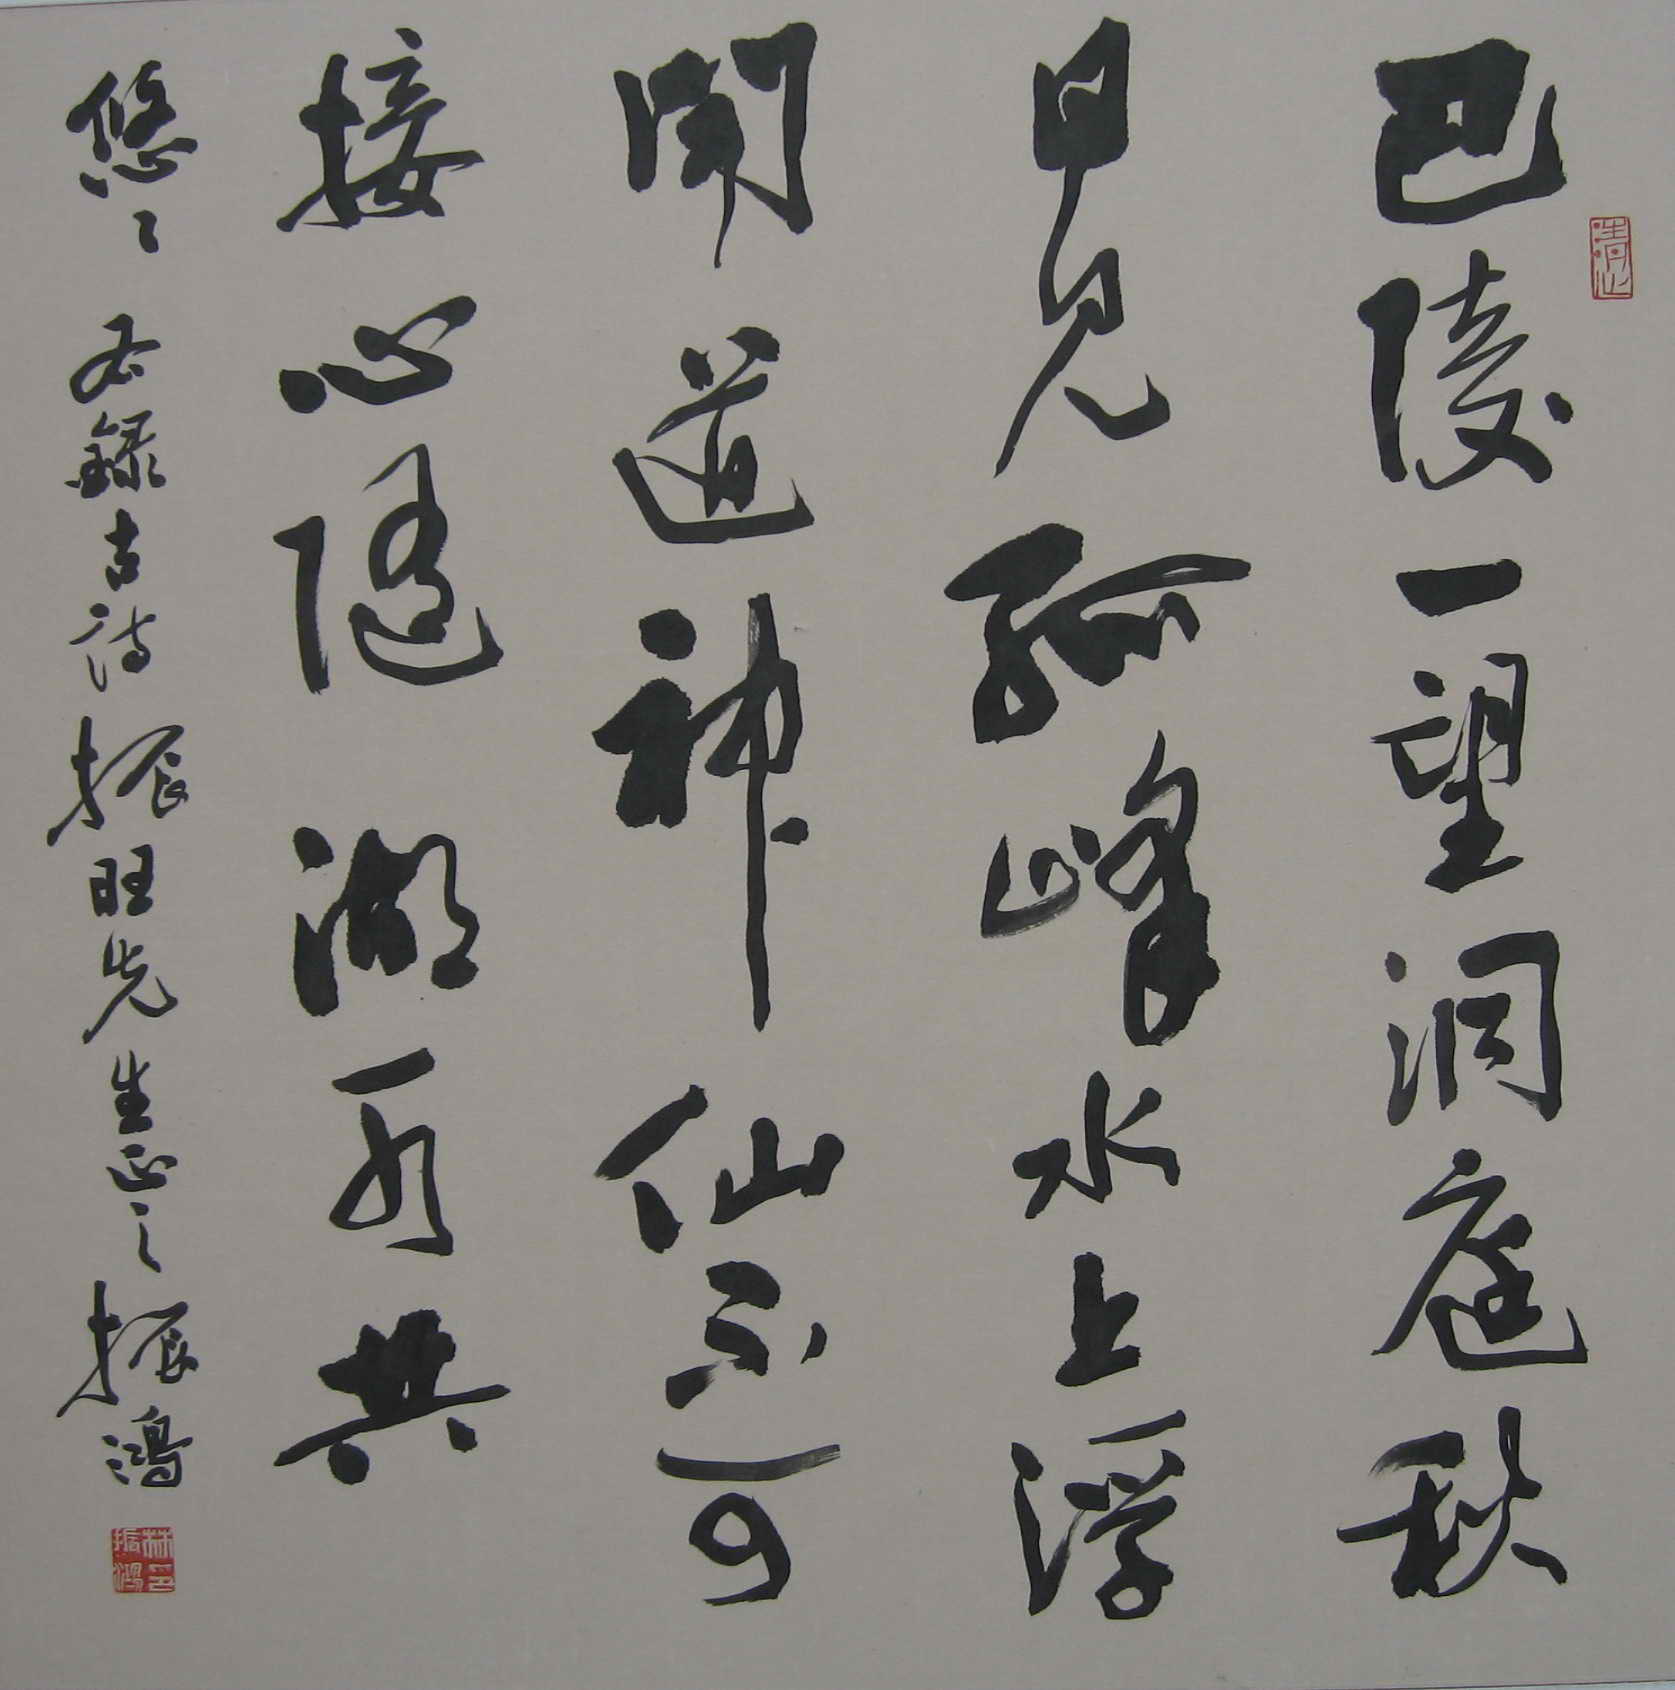 巴陵一望洞庭秋
日見孤峰水上浮
聞道神仙不可
接心隨湖水共
悠々 右錄古詩 振旺先生正之 振鴻
林印振鴻